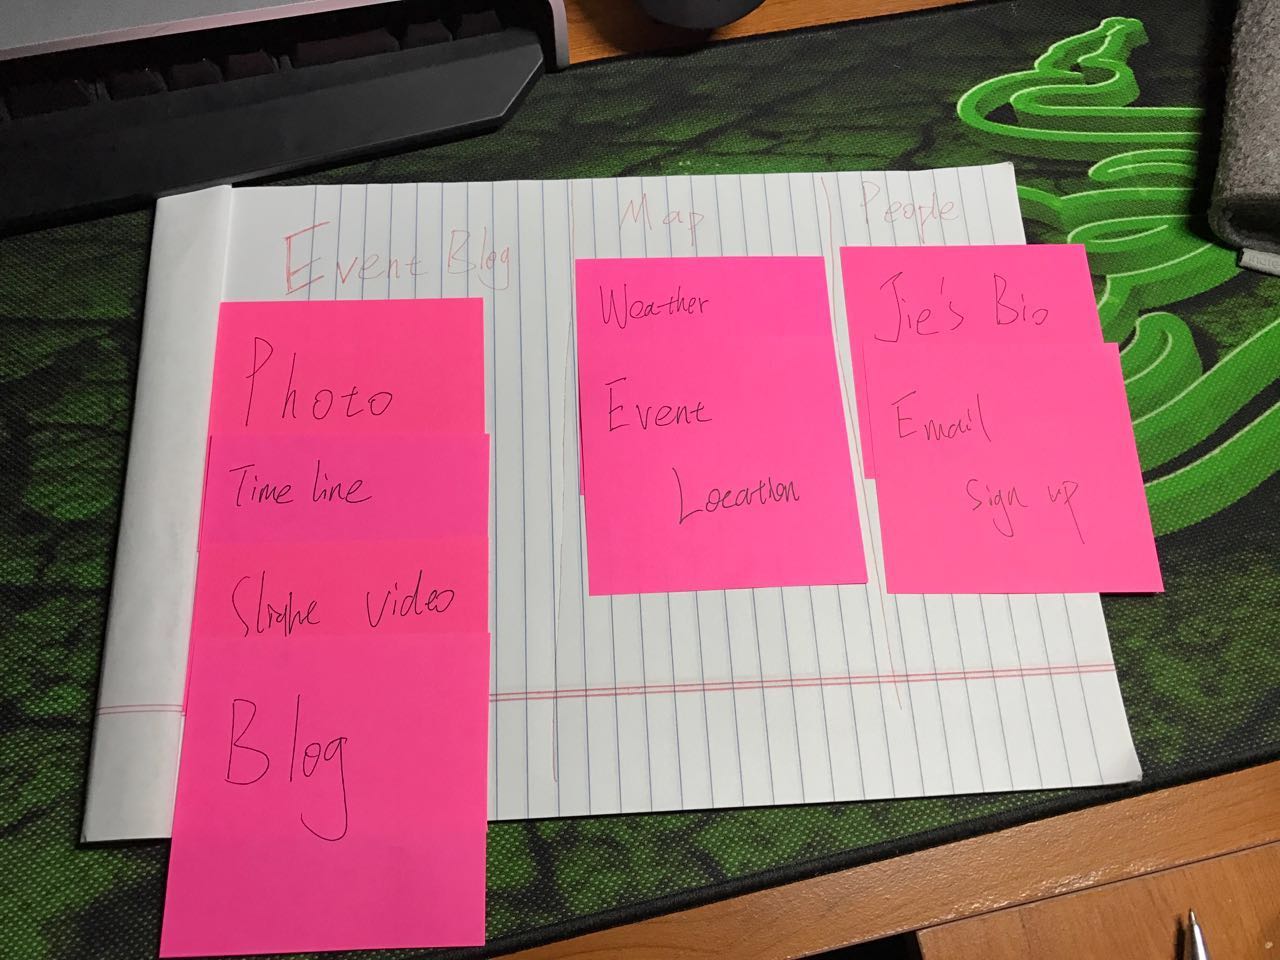 Event Blog
Photo
Time line
video
Blog
Map
Weather
Event
Location
People
Jie's Bio
Email
Sign up